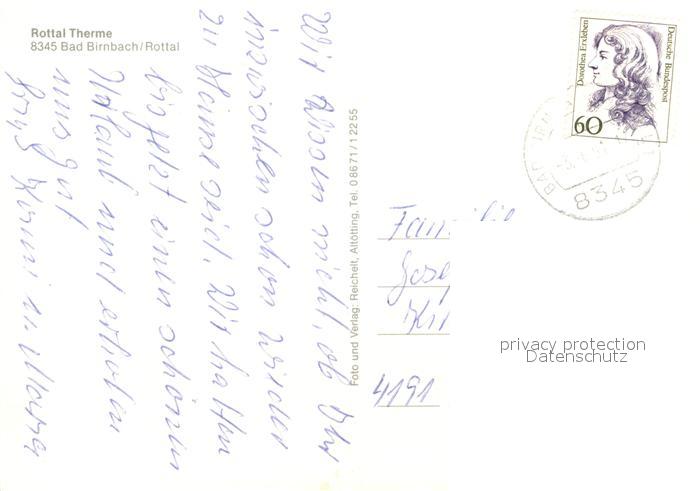 Rottal Therme
8345 Bad Birnbach/Rottal
Wir wissen nicht, ob Ihr
inzwischen schon wieder
zu Hause seid. Wir hatten
bis jetzt einen schönen
Urlaub und erholen
uns gut
Gruß u.
Foto und Verlag: Reichelt, Altötting, Tel. 08671/12255
Dorothea Erxleben
Deutsche Bundespost
60
BAD
8345
Familie
Josef
4191
privacy protection
Datenschutz